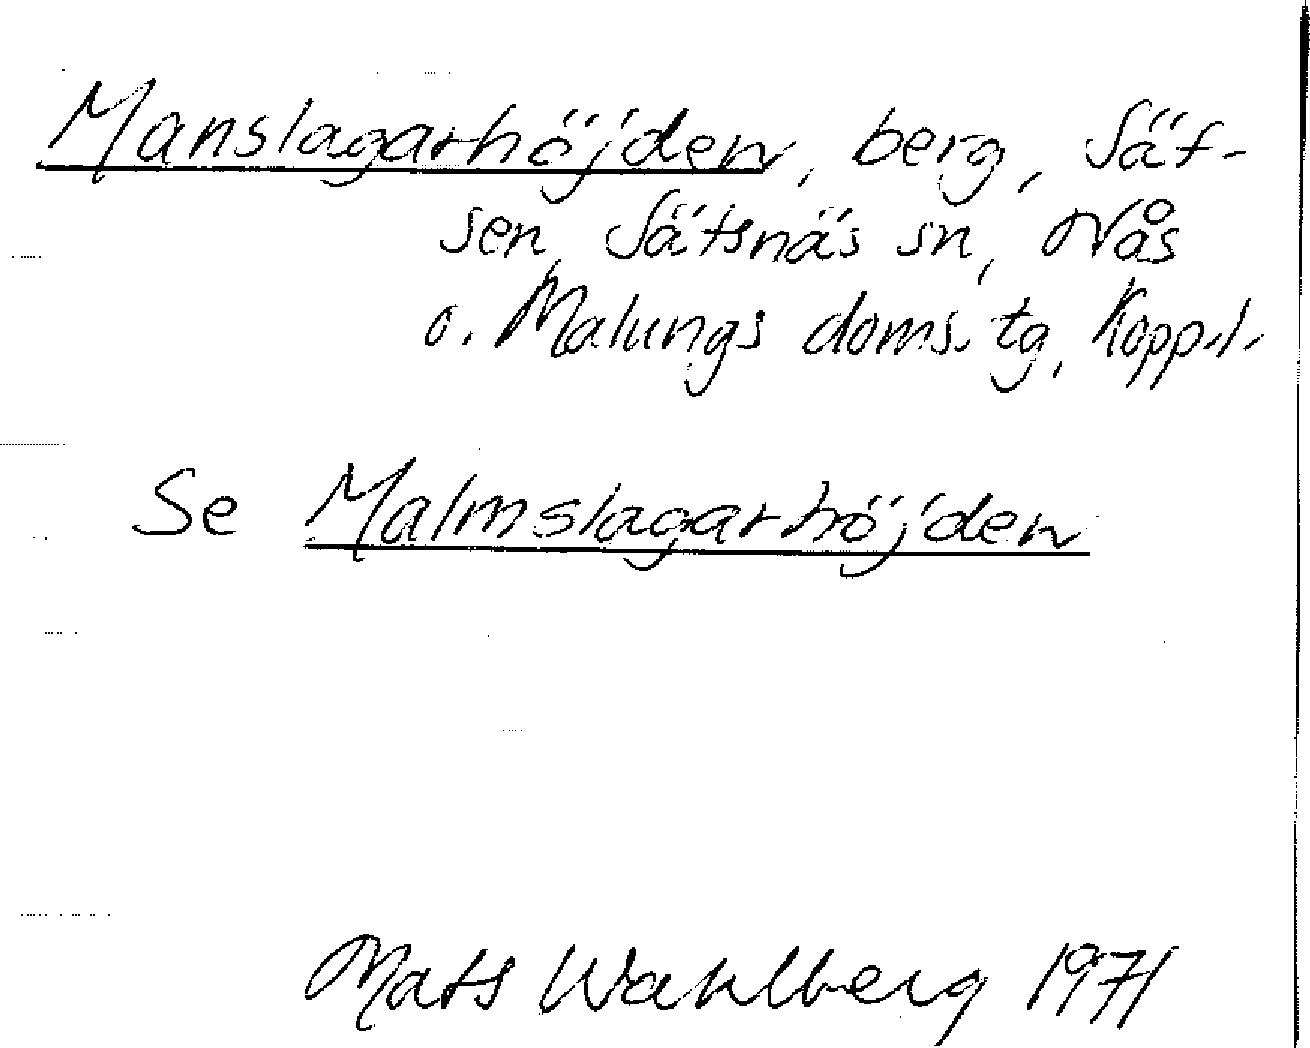 Manslagarhöjden, berg, Sät-
sen, Sätsnäs sn, Nås
o. Malungs doms. tg, Kopp.l.
Se Malmslagarhöjden
Mats Wahlberg 1971